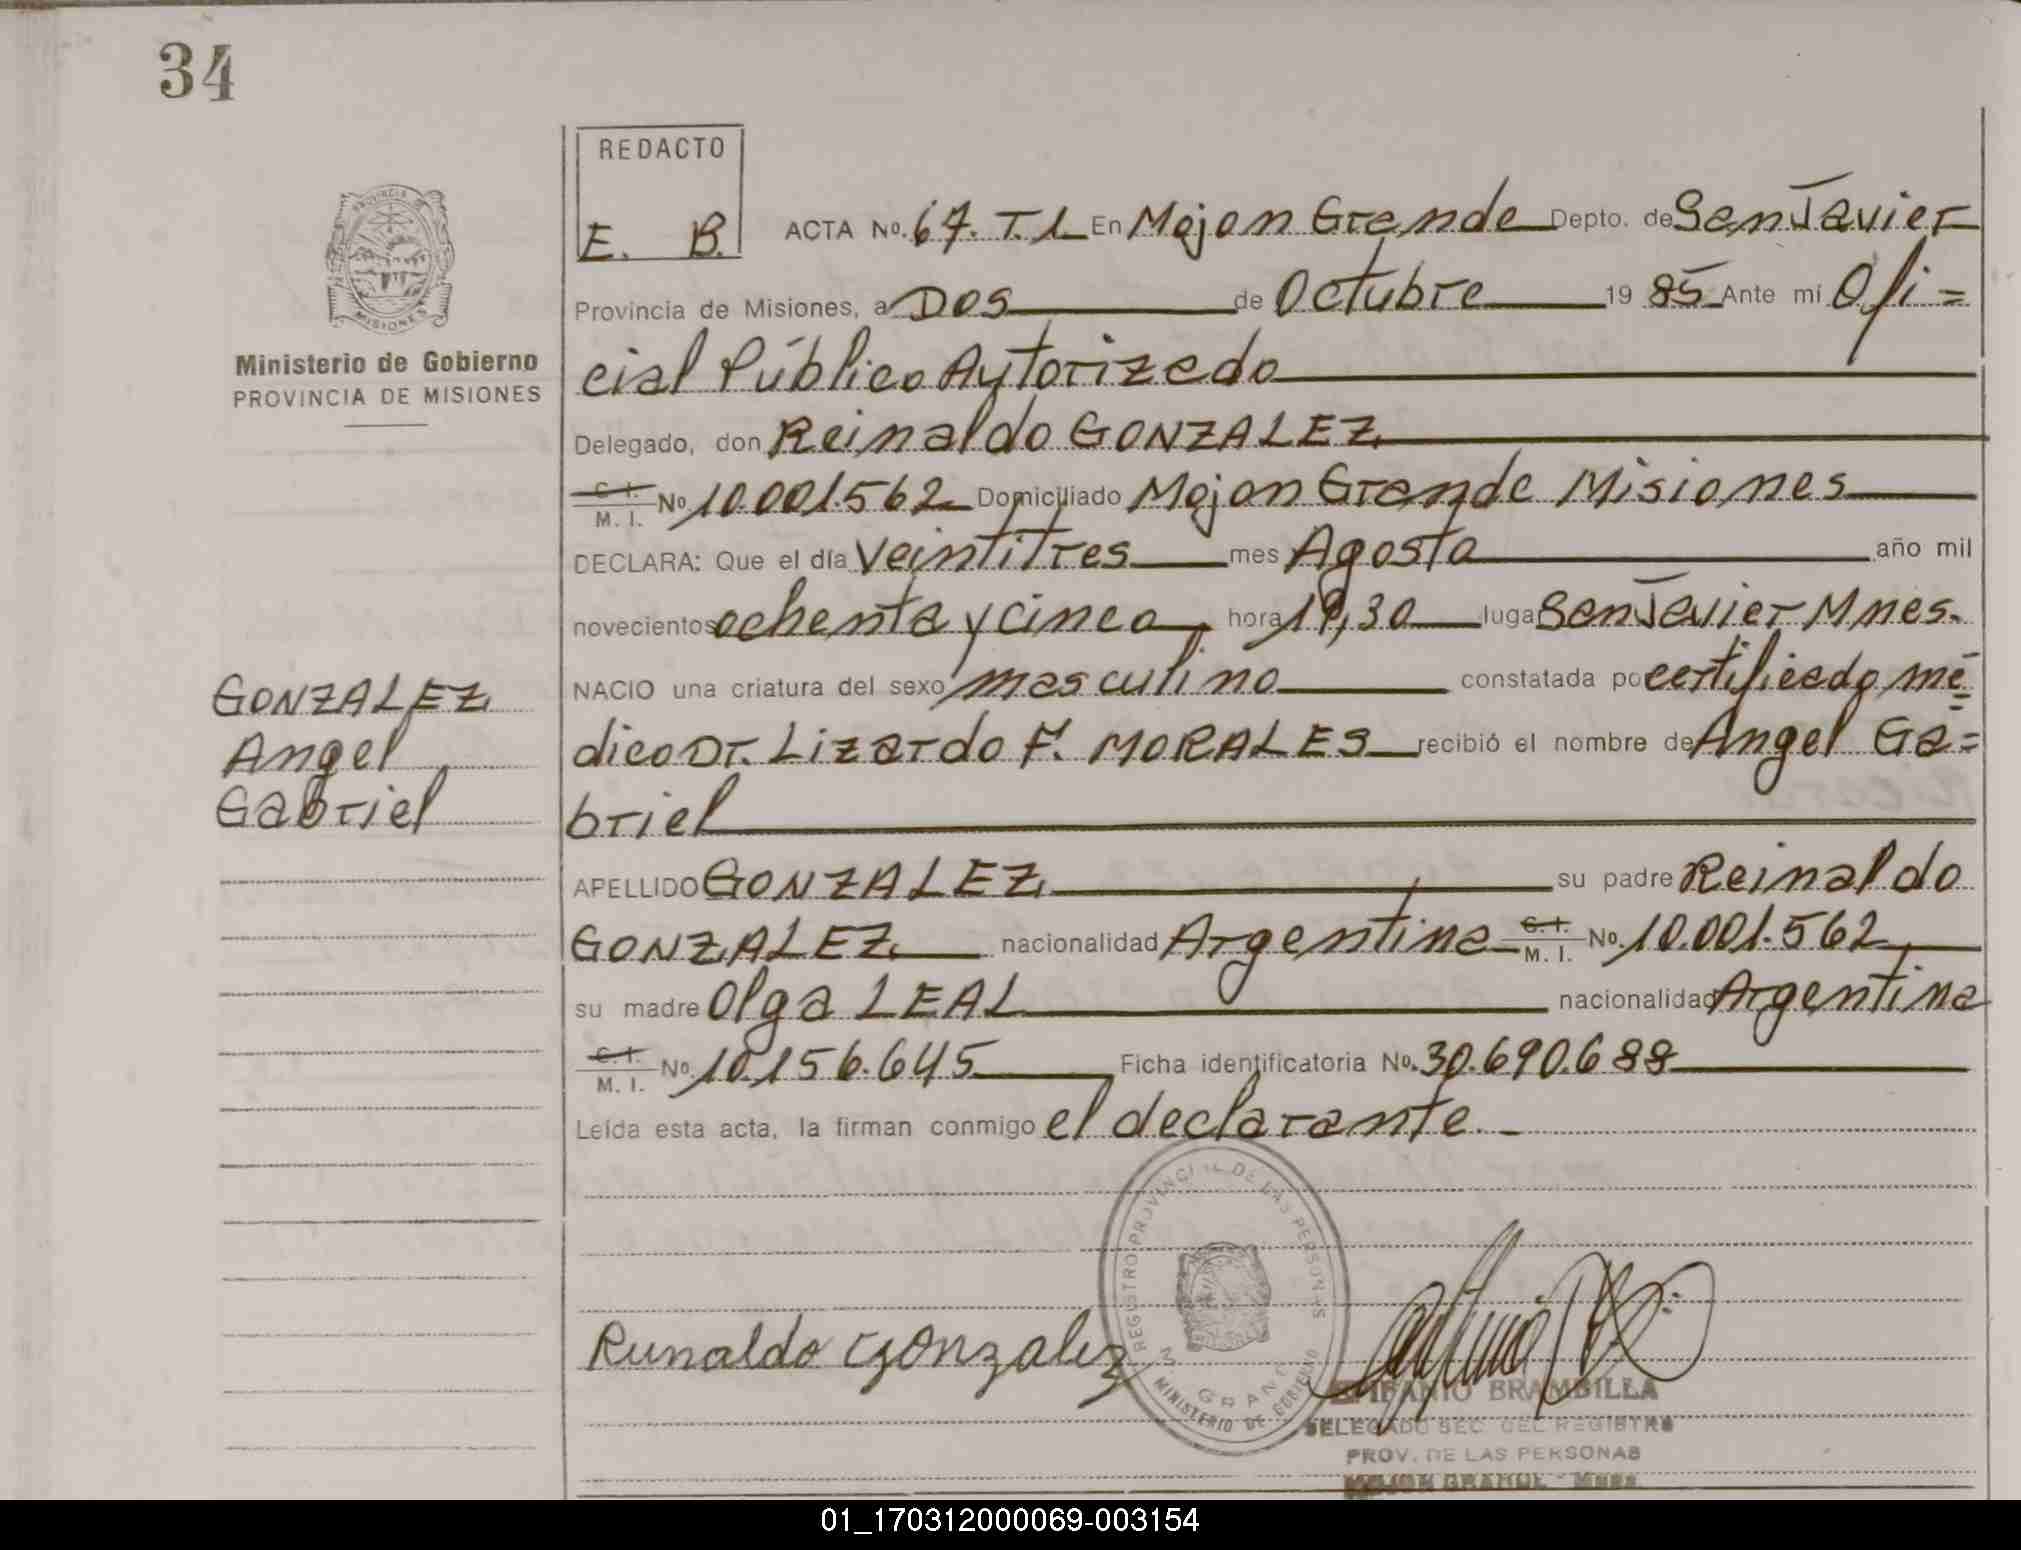 34
REDACTO
E. B.
ACTA No. 67. T. 1. En Mojon Grande Depto. de San Javier
Provincia de Misiones, a Dos de Octubre 19 85 Ante mí Ofi=
Ministerio de Gobierno
PROVINCIA DE MISIONES
cial Público Autorizado
Delegado, don Reinaldo GONZALEZ
C. I. M. I. No 10.001.562 Domiciliado Mojon Grande Misiones
DECLARA: Que el día Veintitres mes Agosto año mil
novecientos ochenta y cinco hora 19,30 luga San Javier Mnes.
NACIO una criatura del sexo masculino constatada po certificado mé=
dico Dr. Lizardo F. MORALES recibió el nombre de Angel Ga=
briel
GONZALEZ
Angel
Gabriel
APELLIDO GONZALEZ su padre Reinaldo
GONZALEZ nacionalidad Argentina C. I. M. I. No. 10.001.562
su madre Olga LEAL nacionalidad Argentina
C. I. M. I. No. 10.156.645 Ficha identificatoria No. 30.690.688
Leída esta acta, la firman conmigo el declarante.
REGISTRO PROVINCIAL DE LAS PERSONAS
MINISTERIO DE GOBIERNO
Runaldo Gonzalez
EPIFANIO BRAMBILLA
DELEGADO SEC. DEL REGISTRO
PROV. DE LAS PERSONAS
MOJON GRANDE - Mnes.
01_170312000069-003154